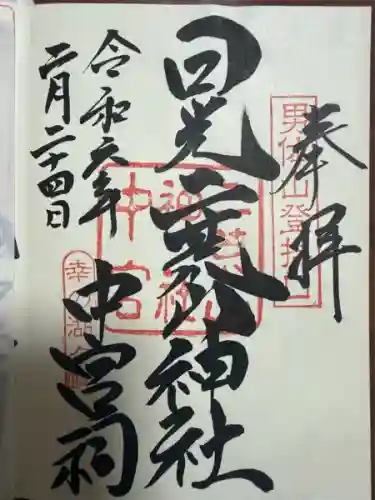 奉拝
男体山登拝口
日光二荒山神社
二荒山神社
中宮
中宮祠
幸の湖
令和六年
二月二十四日